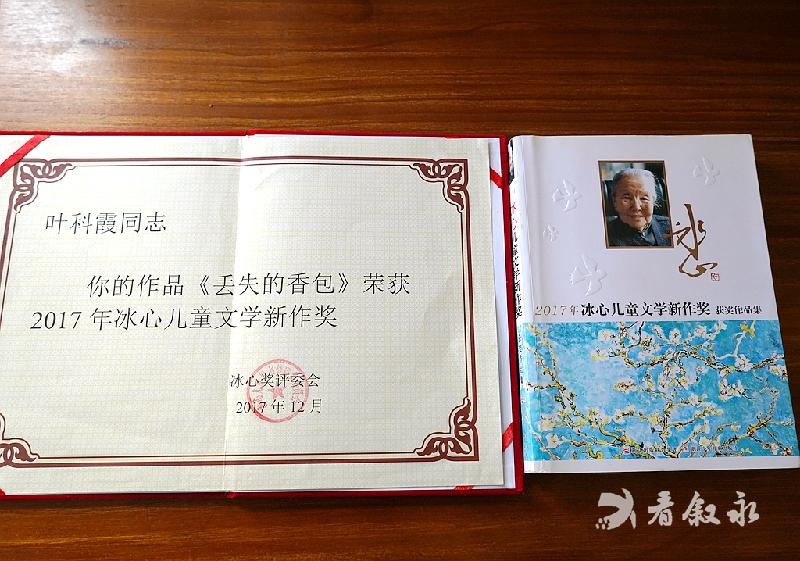 叶科霞同志
你的作品《丢失的香包》荣获
2017年冰心儿童文学新作奖
冰心奖评委会
2017年12月
冰心
2017年冰心儿童文学新作奖 获奖作品集
看叙永